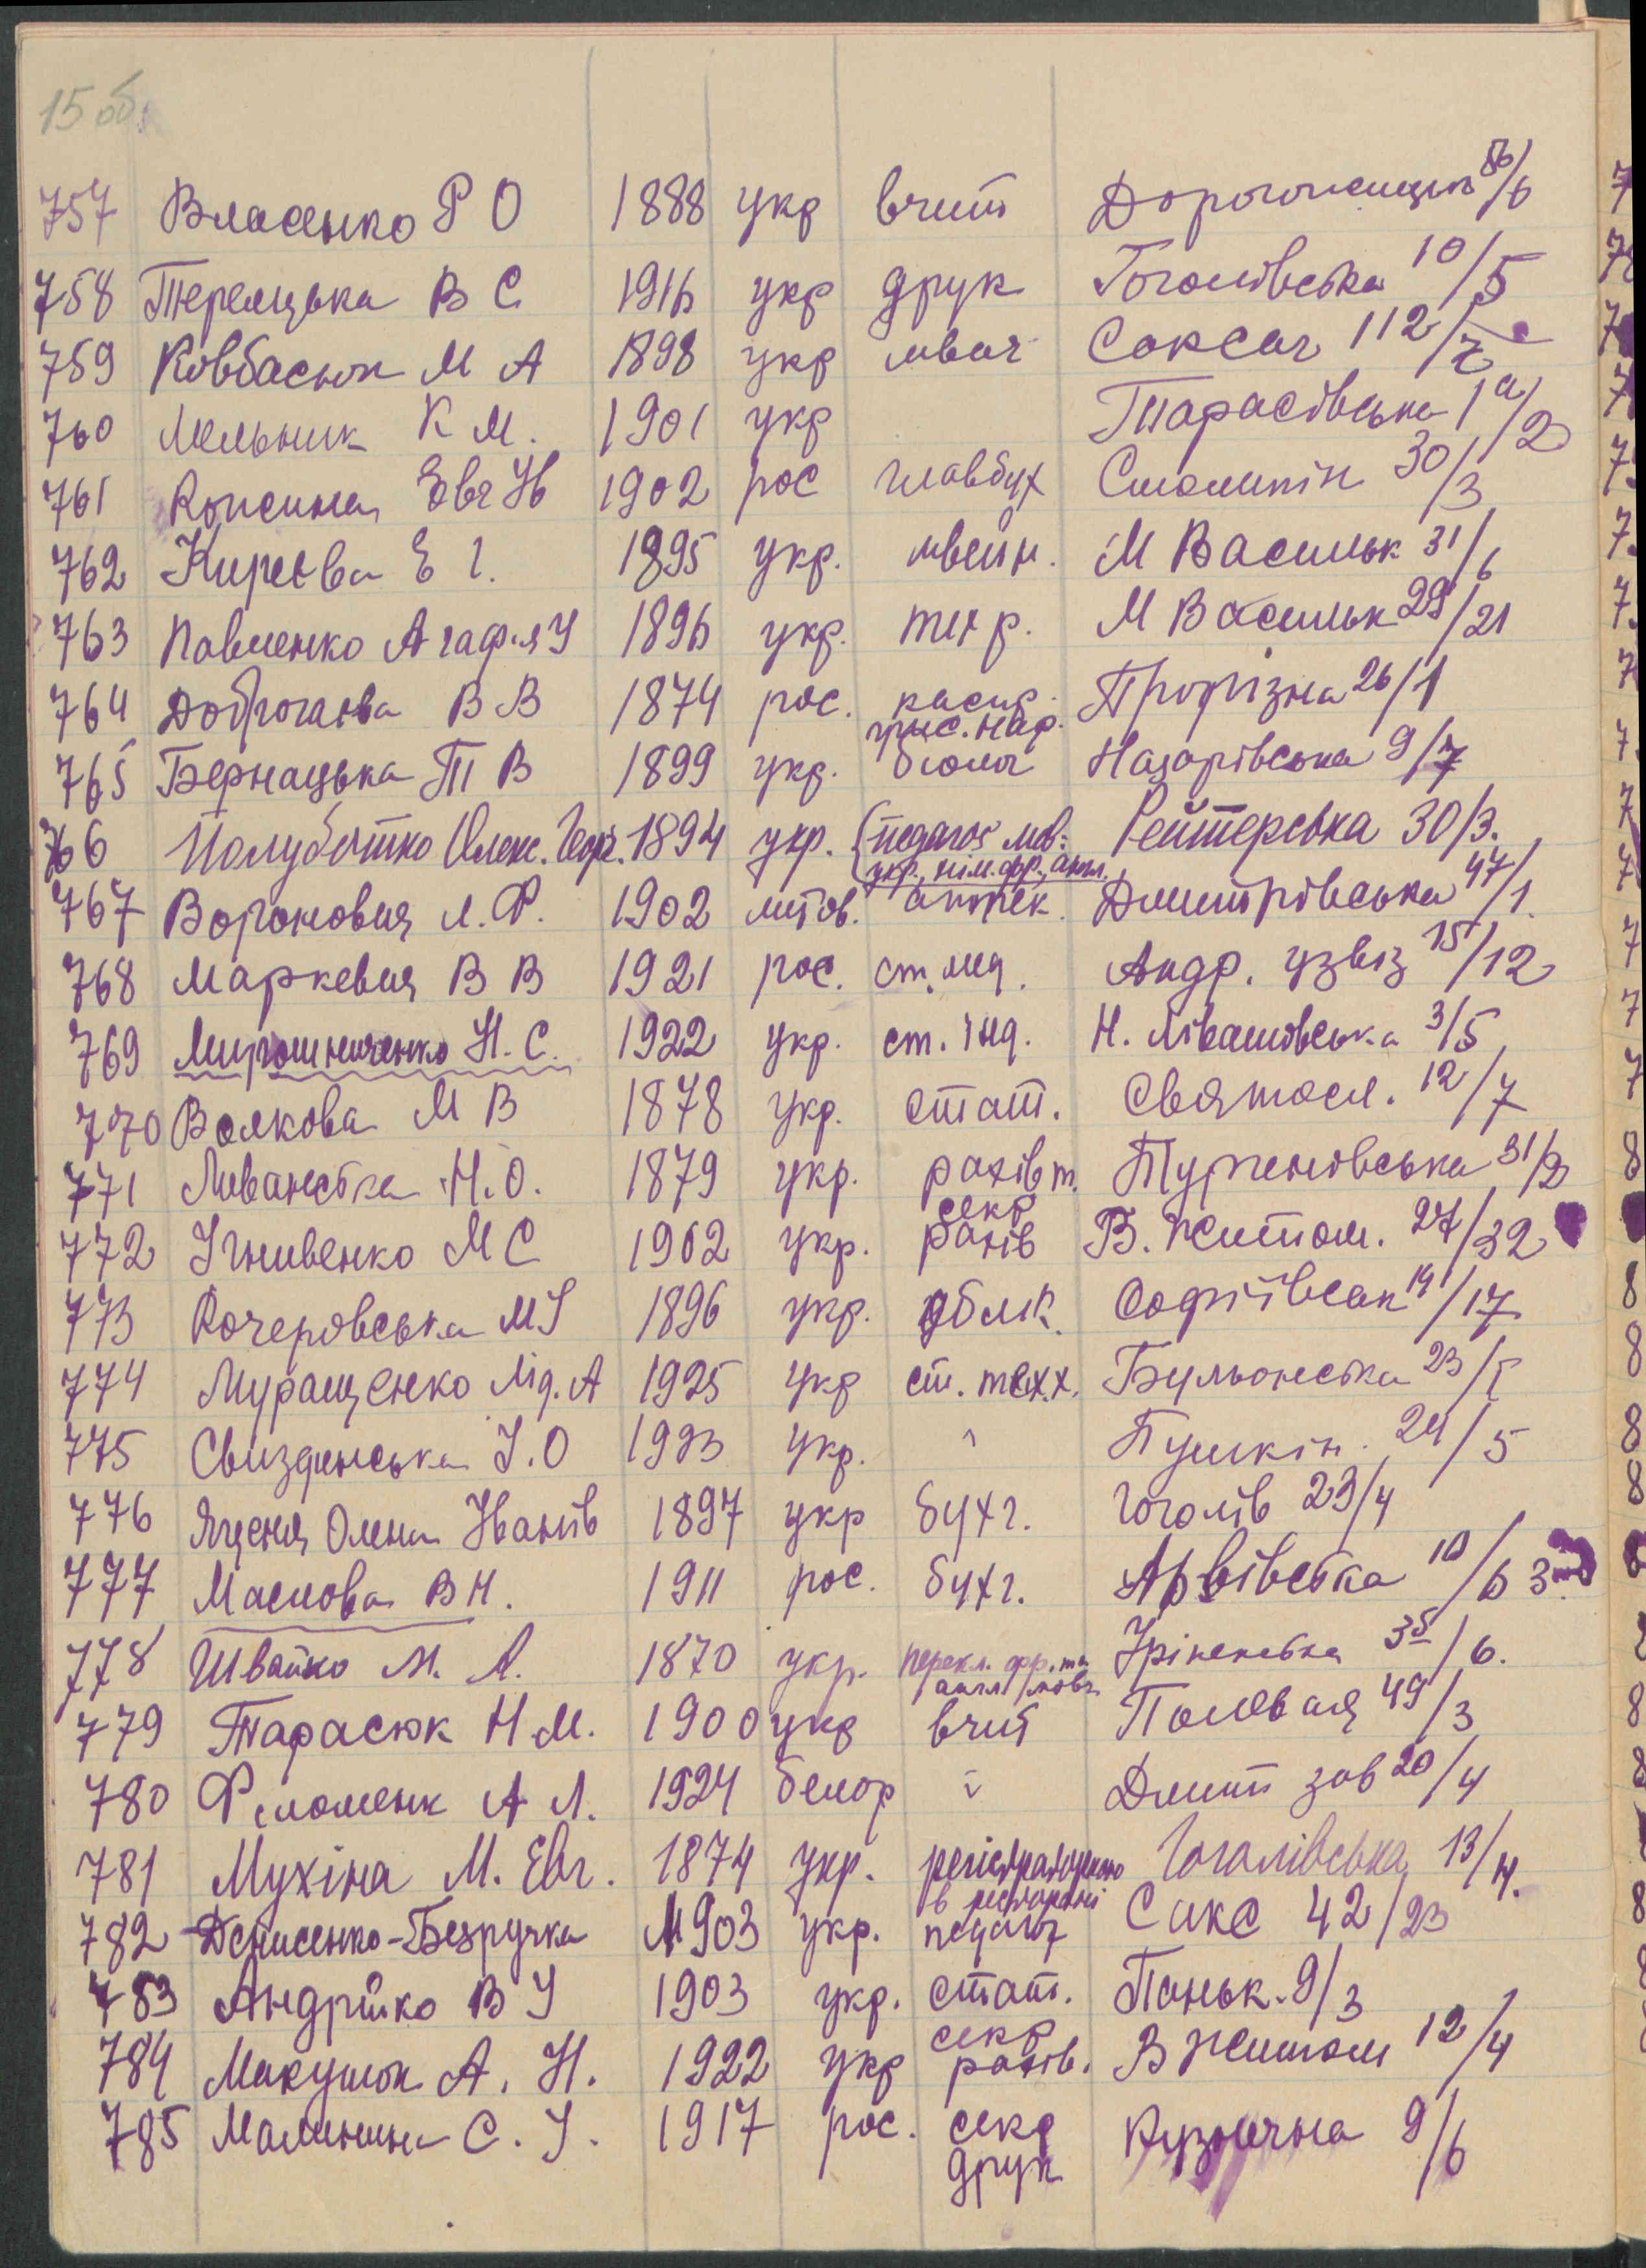 15 об.
757 Власенко Р О 1888 укр вчит Дорогожицьк 86/6
758 Терлецька В С 1916 укр друк Гоголівська 10/5
759 Ковбасюк М А 1898 укр швач Саксаг 112/7
760 Мельник К М. 1901 укр Тарасівська 1а/2
761 Євг Ив 1902 рос главбух Столипін 30/3
762 Киреєва Е І. 1895 укр. швейн. М Васильк 31/6
763 Павленко Агаф-я У 1896 укр. тех р. М Васильк 29/21
764 В В 1874 рос. касир. Прорізна 26/1
765 Бернацька Т В 1899 укр. біолог Назарівська 9/7
766 Полуботко Олекс. Георг. 1894 укр. (педагог мов: Рейтерська 30/3.
укр., нім. фр., англ.
767 Воронович Л. Ф. 1902 литов. аптек. Дмитрівська 47/1.
768 Маркевич В В 1921 рос. ст. мед. Андр. узвіз 15/12
769 Мирошниченко Н. С. 1922 укр. ст. інд. Н. 3/5
770 Волкова М В 1878 укр. стат. Святосл. 12/7
771 Н. О. 1879 укр. рахівн. Тургенівська 31/2
772 Гнивенко М С 1902 укр. секр рахів В. Житом. 27/32
773 Кочеровська М І 1896 укр. облік. Софіївськ 14/17
774 Муращенко Лід. А 1925 укр ст. тех.х. Бульонська 23/
775 Свиздинська І. О 1923 укр. " Пушкін. 24/5
776 Ячєня Олена Іванів 1897 укр бухг. Гоголів 23/4
777 Маслова В Н. 1911 рос. бухг. 10/6
778 Швайко М. Л. 1870 укр. перекл. фр. та англ мов 35/6.
779 Тарасюк Н М. 1900 укр вчит Полевая 49/3
780 А Л. 1924 белор " Дмит зав 20/4
781 Мухіна М. Євг. 1874 укр. регістраторкою в ресторані Гоголівська 13/4.
782 Денисенко-Безручка 1903 укр. педагог Сакс 42/23
783 Андрійко В У 1903 укр. стат. Паньк. 9/3
784 Макушок А. Н. 1922 укр секр рахів. В Житом 12/4
785 Малинина С. І. 1917 рос. секр друк Кузнечна 9/6